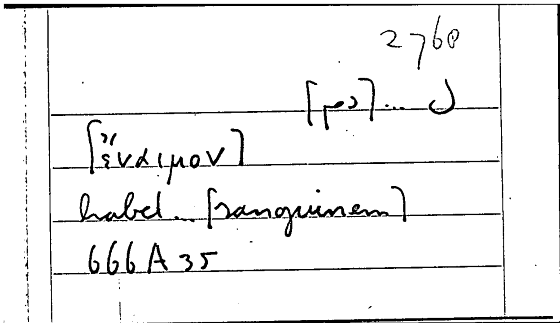 2760
ل ... [دم]
[ἔναιμον]
habet... [sanguinem]
666A35